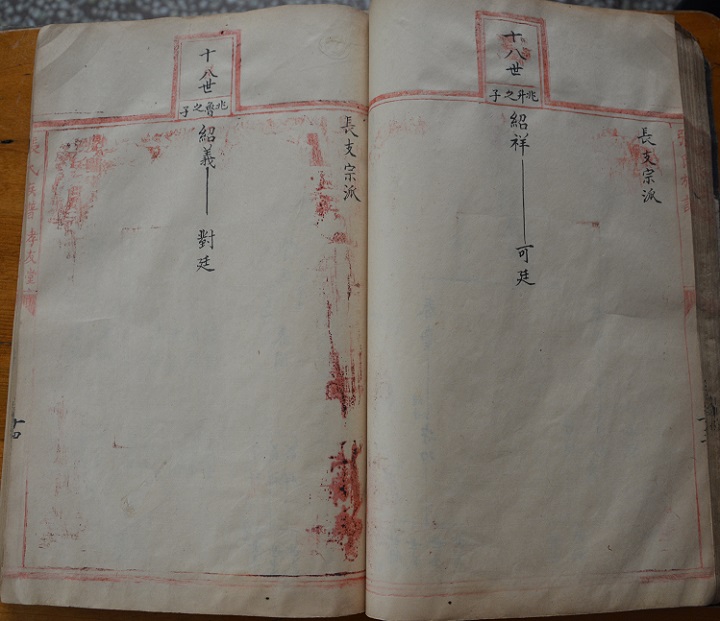 長支宗派
十八世
兆升之子
紹祥 可廷
長支宗派
十八世
兆之子
紹義 對廷
氏族譜 孝友堂